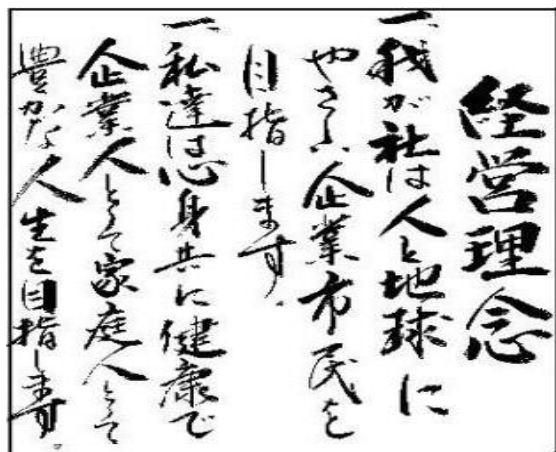 経営理念
一、我が社は人と地球に
やさしい企業市民を
目指します。
一、私達は心身共に健康で
企業人として家庭人として
豊かな人生を目指します。